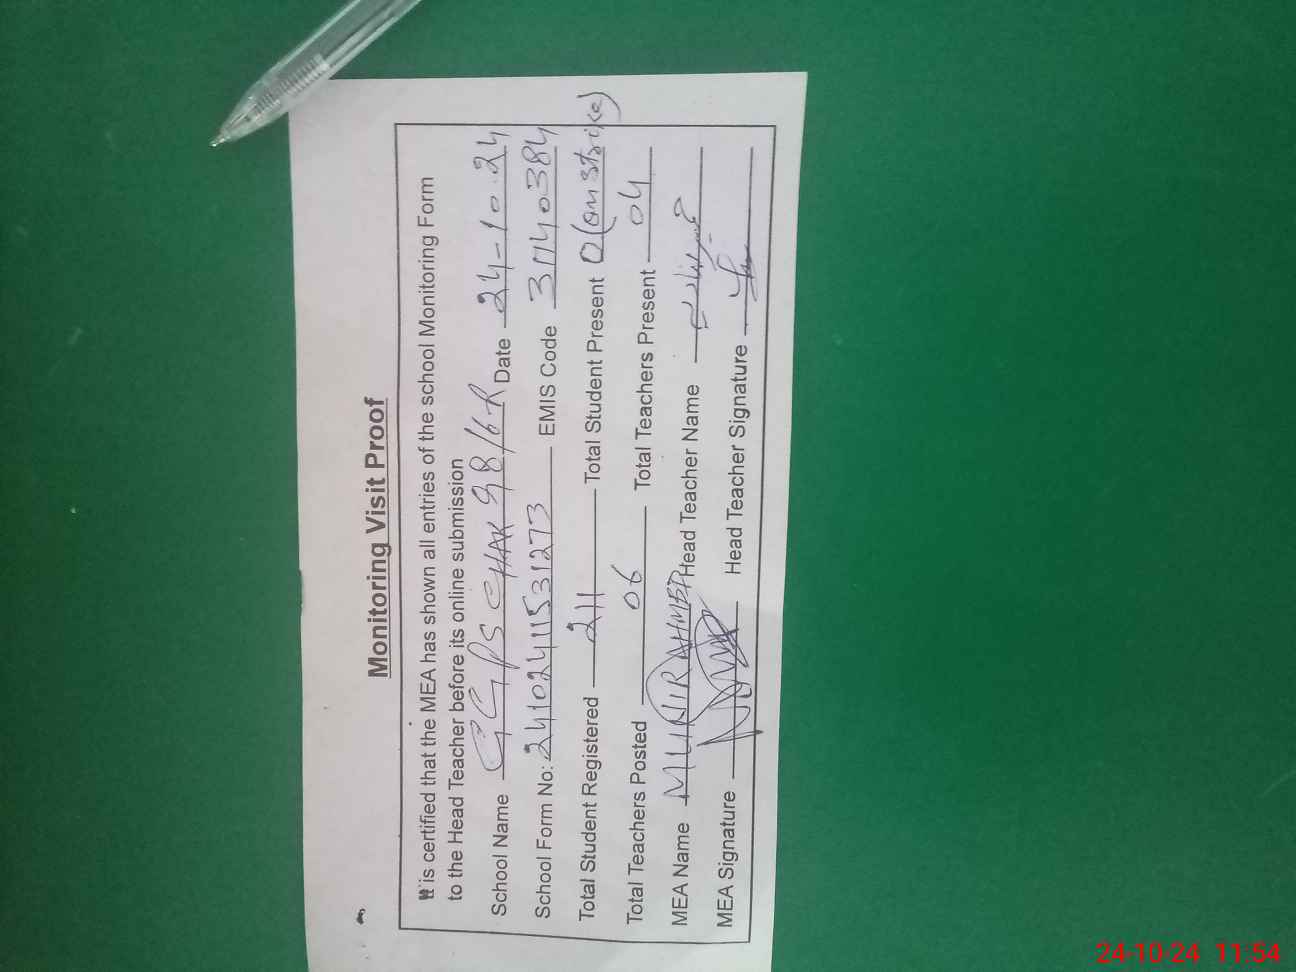 Monitoring Visit Proof
It is certified that the MEA has shown all entries of the school Monitoring Form
to the Head Teacher before its online submission
School Name GGPS CHAK 98/6-R Date 24-10-24
School Form No: 24102411531273 EMIS Code 31740384
Total Student Registered 211 Total Student Present 0 (on strike)
Total Teachers Posted 06 Total Teachers Present 04
MEA Name MUNIR AHMED Head Teacher Name
MEA Signature Head Teacher Signature
24-10-24 11:54